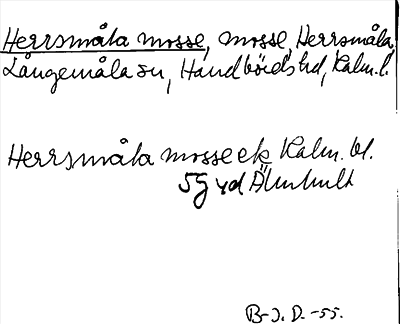 Herrsmåla mosse, mosse, Herrsmåla,
Långemåla sn, Handbörds hd, Kalm. l.
Herrsmåla mosse ek Kalm. bl.
59 vd Älmhult
B-J. D. -55.